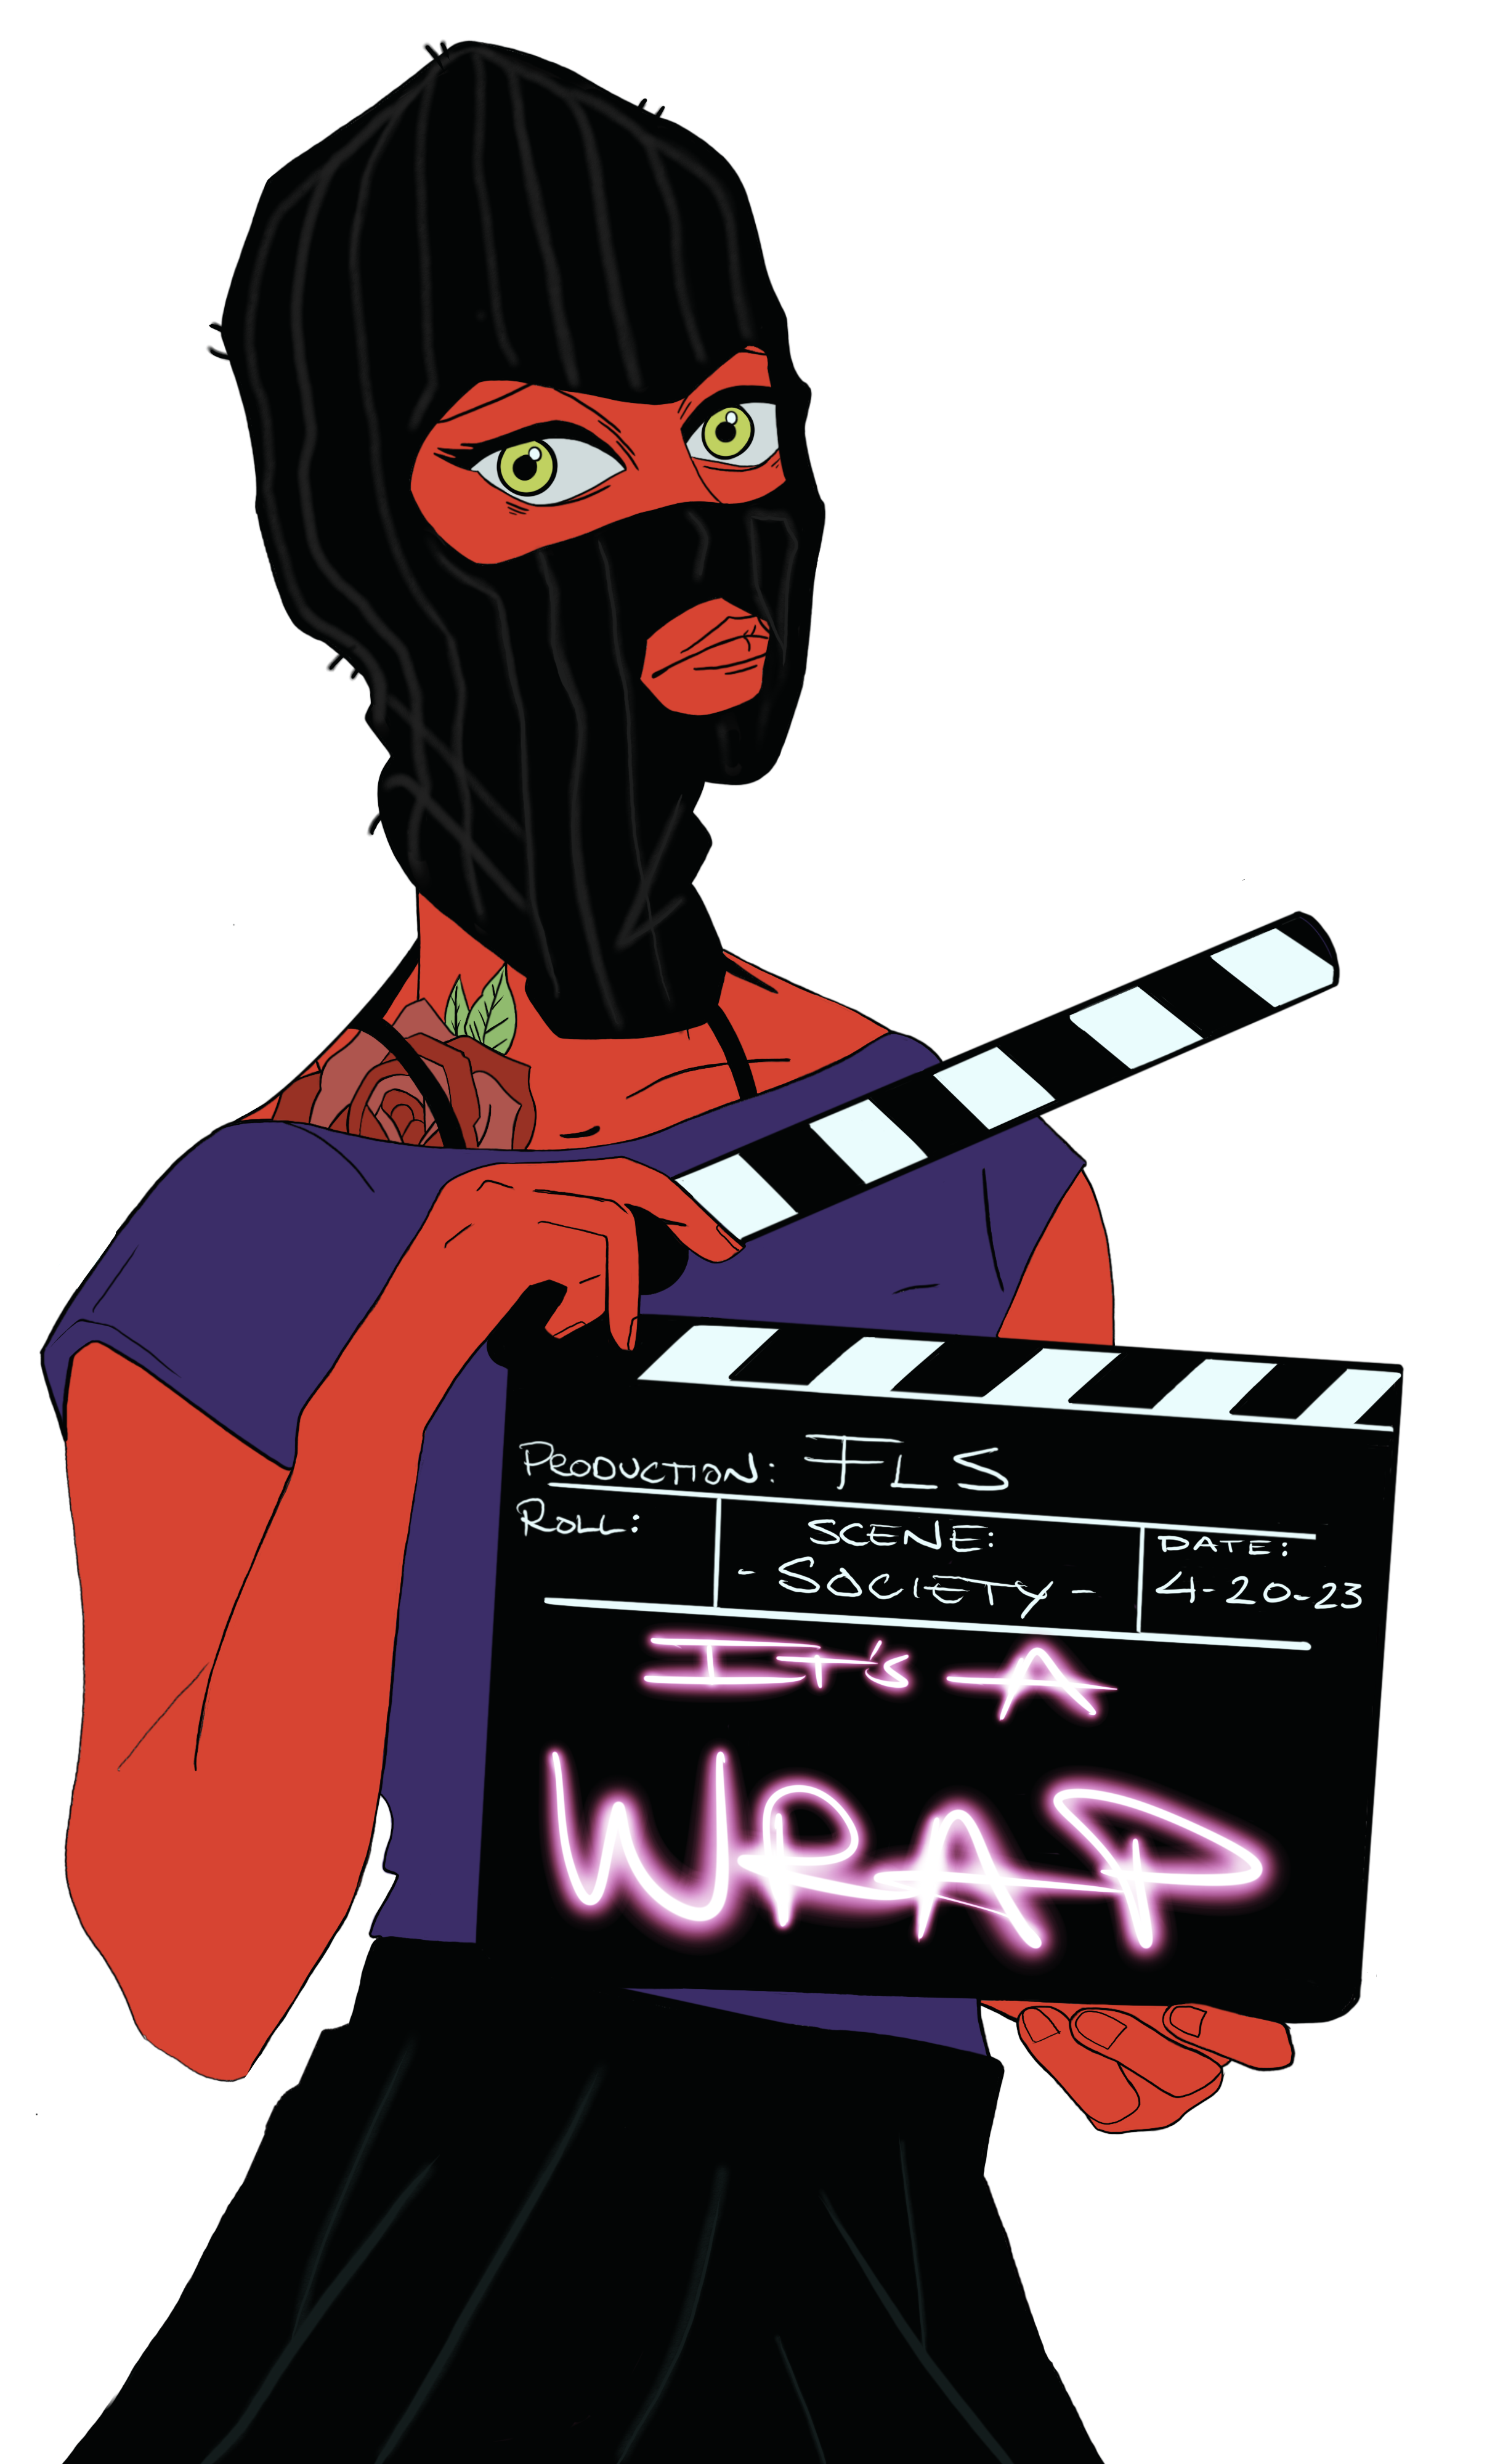 PRODUCTION: FLS
ROLL:
SCENE:
- SOCIETY -
DATE:
4-20-23
IT'S A
WRAP